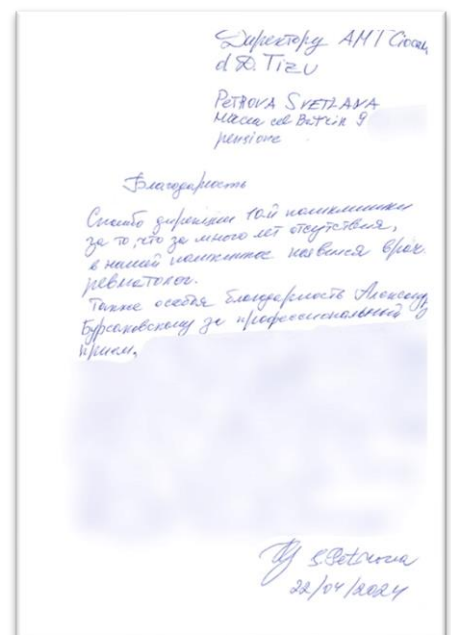 Директору АМТ Ciocana
d D. Tizu
PETROVA SVETLANA
Mircea cel Bătrîn 9
pensione
Благодарность
Спасибо дирекции 10ой поликлиники
за то, что за много лет отсутствия,
в нашей поликлинике появился врач
ревматолог.
Также особая благодарность Александру
Бурсаковскому за профессиональный
прием.
S. Petrova
22/04/2024